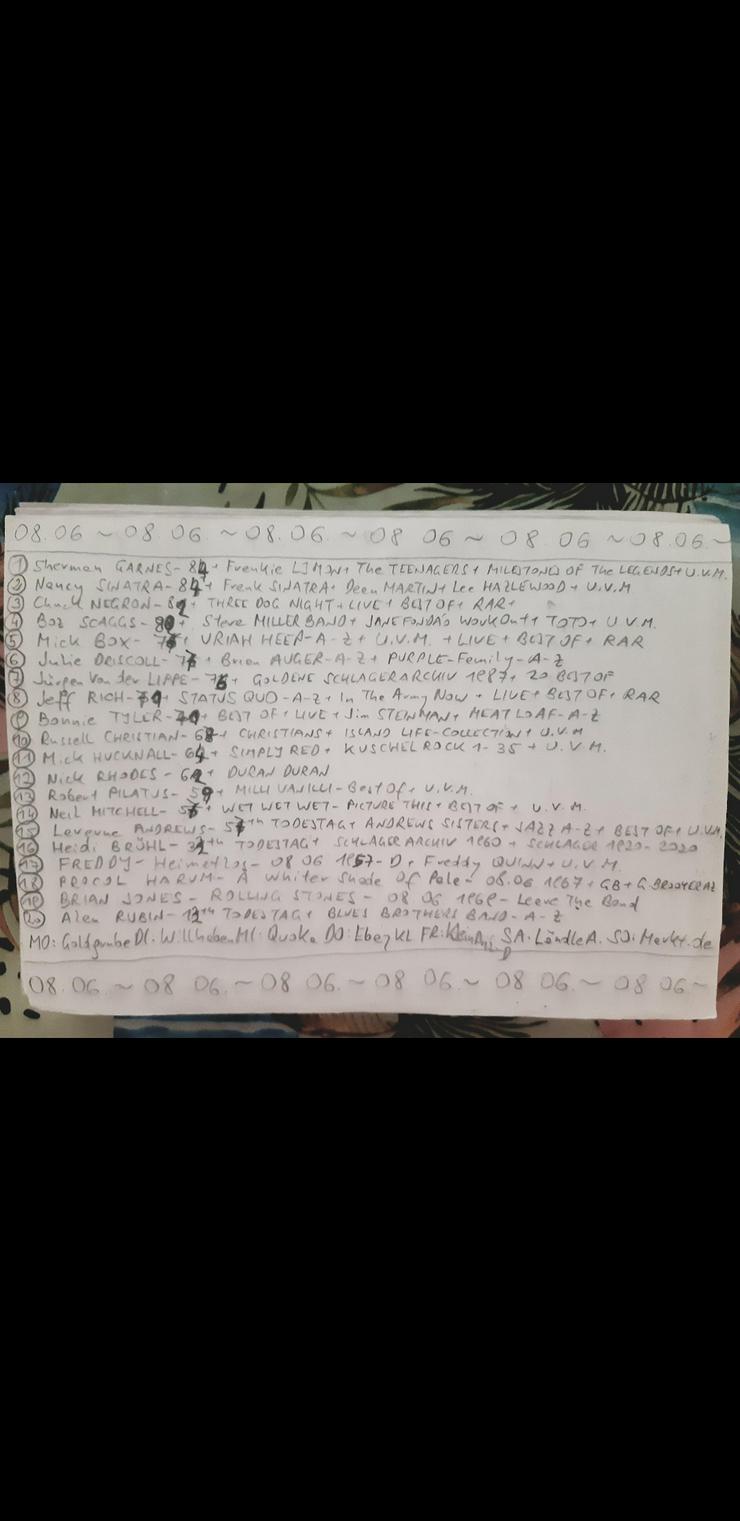 08.06 ~ 08 06. ~ 08.06. ~ 08 06 ~ 08.06 ~ 08.06. ~
① Sherman GARNES - 84 + Frenkie LIMON + The TEENAGERS + MILESTONES OF The LEGENDS + U.V.M.
② Nancy SINATRA - 84 + Frenk SINATRA + Deen MARTIN + Lee HAZLEWOOD + U.V.M
③ Chuck NEGRON - 82 + THREE DOG NIGHT + LIVE + BEST OF + RAR +
④ Boz SCAGGS - 80 + Steve MILLER BAND + JANE FONDA's WORKOut + TOTO + U V M.
⑤ Mick BOX - + URIAH HEEP - A-Z + U.V.M. + LIVE + BEST OF + RAR
⑥ Julie DRISCOLL - + Brien AUGER - A-Z + PURPLE - Femily - A-Z
⑦ Jürgen Van der LIPPE - 76 + GOLDENE SCHLAGERARCHIV 1987 + 20 BEST OF
⑧ Jeff RICH - + STATUS QUO - A-Z + In The Army Now + LIVE + BEST OF + RAR
⑨ Bonnie TYLER - + BEST OF + LIVE + Jim STEINMAN + MEAT LOAF - A-Z
⑩ Russell CHRISTIAN - + CHRISTIANS + ISLAND LIFE - COLLECTION + U.V.M
⑪ Mick HUCKNALL - 64 + SIMPLY RED + KUSCHELROCK 1-35 + U.V.M.
⑫ Nick RHODES - 62 + DURAN DURAN
⑬ Robert PILATUS - 59 + MILLI VANILLI - Best Of + U.V.M.
⑭ Neil MITCHELL - + WET WET WET - PICTURE THIS + BEST OF + U.V.M.
⑮ Laverne ANDREWS - th TODESTAG + ANDREWS SISTERS + JAZZ A-Z + BEST OF + U.V.M,
⑯ Heidi BRÜHL - 32th TODESTAG + SCHLAGERARCHIV 1960 + SCHLAGER 1920-2020
⑰ FREDDY - Heimetlos - 08 06 1957 - D + Freddy QUINN + U.V.M.
⑱ PROCOL HARUM - A Whiter Shade Of Pale - 08.06 1967 + GB + G. BROOKER AZ
⑲ BRIAN JONES - ROLLING STONES - 08 06 1969 - Leeve The Band
⑳ Alen RUBIN - th TODESTAG + BLUES BROTHERS BAND - A-Z
MO: Goldgrube DI: Willhaben MI: Quoka DO: Ebay KL FR: SA: LändleA. SO: Markt.de
08.06. ~ 08 06. ~ 08 06. ~ 08 06. ~ 08 06. ~ 08 06 ~